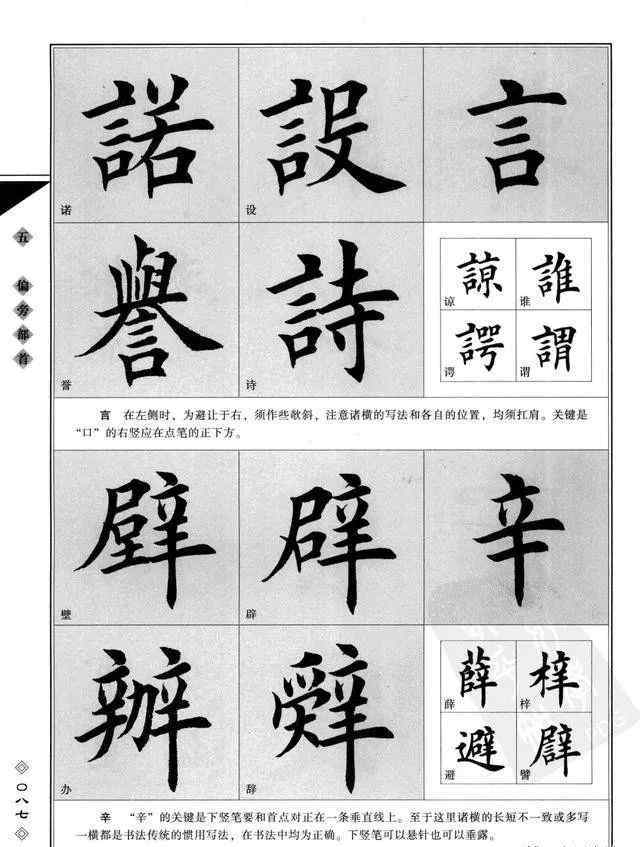 五 偏旁部首
諾 設 言
诺 设
譽 詩
誉 诗
諒 誰
谅 谁
諤 謂
谔 谓
言 在左侧时，为避让于右，须作些欹斜，注意诸横的写法和各自的位置，均须扛肩。关键是
“口”的右竖应在点笔的正下方。
壁 辟 辛
璧 辟
辦 辭
办 辞
薛 梓
薛 梓
避 譬
避 譬
辛 “辛”的关键是下竖笔要和首点对正在一条垂直线上。至于这里诸横的长短不一致或多写
一横都是书法传统的惯用写法，在书法中均为正确。下竖笔可以悬针也可以垂露。
〇八七